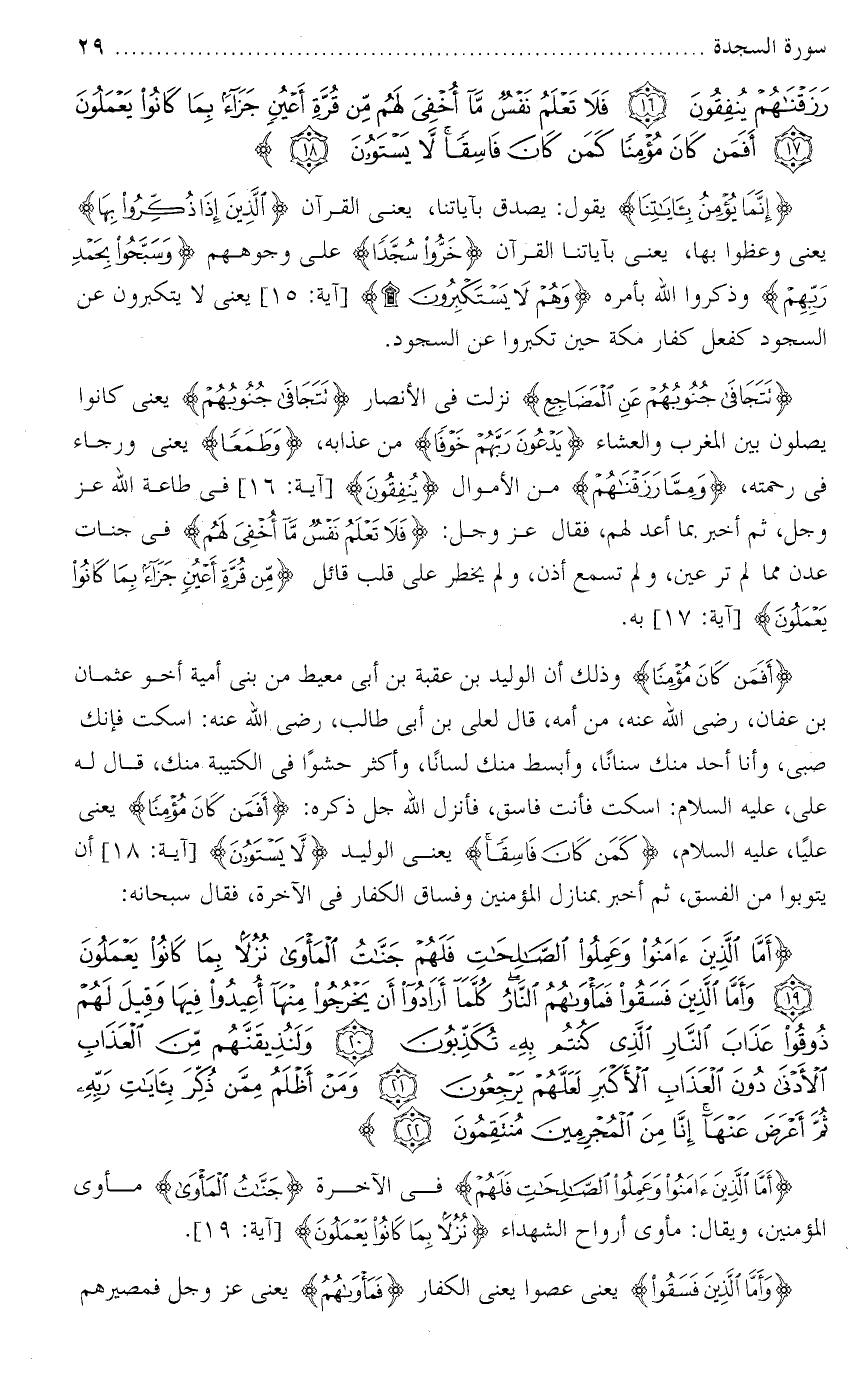 سورة السجدة ........................................................................ ٢٩
رَزَقْنَٰهُمْ يُنفِقُونَ ١٦ فَلَا تَعْلَمُ نَفْسٌ مَّآ أُخْفِىَ لَهُم مِّن قُرَّةِ أَعْيُنٍ جَزَآءًۢ بِمَا كَانُوا۟ يَعْمَلُونَ
١٧ أَفَمَن كَانَ مُؤْمِنًا كَمَن كَانَ فَاسِقًا ۚ لَّا يَسْتَوُۥنَ ١٨ ﴾
﴿إِنَّمَا يُؤْمِنُ بِـَٔايَٰتِنَا﴾ يقول: يصدق بآياتنا، يعنى القرآن ﴿الَّذِينَ إِذَا ذُكِّرُوا۟ بِهَا﴾
يعنى وعظوا بها، يعنى بآياتنا القرآن ﴿خَرُّوا۟ سُجَّدًا﴾ على وجوههم ﴿وَسَبَّحُوا۟ بِحَمْدِ
رَبِّهِمْ﴾ وذكروا الله بأمره ﴿وَهُمْ لَا يَسْتَكْبِرُونَ ۩﴾ [آية: ١٥] يعنى لا يتكبرون عن
السجود كفعل كفار مكة حين تكبروا عن السجود.
﴿نَتَجَافَىٰ جُنُوبُهُمْ عَنِ الْمَضَاجِعِ﴾ نزلت فى الأنصار ﴿نَتَجَافَىٰ جُنُوبُهُمْ﴾ يعنى كانوا
يصلون بين المغرب والعشاء ﴿يَدْعُونَ رَبَّهُمْ خَوْفًا﴾ من عذابه، ﴿وَطَمَعًا﴾ يعنى ورجاء
فى رحمته، ﴿وَمِمَّا رَزَقْنَٰهُمْ﴾ من الأموال ﴿يُنفِقُونَ﴾ [آية: ١٦] فى طاعة الله عز
وجل، ثم أخبر بما أعد لهم، فقال عز وجل: ﴿فَلَا تَعْلَمُ نَفْسٌ مَّآ أُخْفِىَ لَهُم﴾ فى جنات
عدن مما لم تر عين، ولم تسمع أذن، ولم يخطر على قلب قائل ﴿مِّن قُرَّةِ أَعْيُنٍ جَزَآءًۢ بِمَا كَانُوا۟
يَعْمَلُونَ﴾ [آية: ١٧] به.
﴿أَفَمَن كَانَ مُؤْمِنًا﴾ وذلك أن الوليد بن عقبة بن أبى معيط من بنى أمية أخو عثمان
بن عفان، رضى الله عنه، من أمه، قال لعلى بن أبى طالب، رضى الله عنه: اسكت فإنك
صبى، وأنا أحد منك سنانًا، وأبسط منك لسانًا، وأكثر حشوًا فى الكتيبة منك، قال له
على، عليه السلام: اسكت فأنت فاسق، فأنزل الله جل ذكره: ﴿أَفَمَن كَانَ مُؤْمِنًا﴾ يعنى
عليًا، عليه السلام، ﴿كَمَن كَانَ فَاسِقًا ۚ﴾ يعنى الوليد ﴿لَّا يَسْتَوُۥنَ﴾ [آية: ١٨] أن
يتوبوا من الفسق، ثم أخبر بمنازل المؤمنين وفساق الكفار فى الآخرة، فقال سبحانه:
﴿أَمَّا الَّذِينَ ءَامَنُوا۟ وَعَمِلُوا۟ الصَّٰلِحَٰتِ فَلَهُمْ جَنَّٰتُ الْمَأْوَىٰ نُزُلًۢا بِمَا كَانُوا۟ يَعْمَلُونَ
١٩ وَأَمَّا الَّذِينَ فَسَقُوا۟ فَمَأْوَىٰهُمُ النَّارُ ۖ كُلَّمَآ أَرَادُوٓا۟ أَن يَخْرُجُوا۟ مِنْهَآ أُعِيدُوا۟ فِيهَا وَقِيلَ لَهُمْ
ذُوقُوا۟ عَذَابَ النَّارِ الَّذِى كُنتُم بِهِۦ تُكَذِّبُونَ ٢٠ وَلَنُذِيقَنَّهُم مِّنَ الْعَذَابِ
الْأَدْنَىٰ دُونَ الْعَذَابِ الْأَكْبَرِ لَعَلَّهُمْ يَرْجِعُونَ ٢١ وَمَنْ أَظْلَمُ مِمَّن ذُكِّرَ بِـَٔايَٰتِ رَبِّهِۦ
ثُمَّ أَعْرَضَ عَنْهَآ ۚ إِنَّا مِنَ الْمُجْرِمِينَ مُنتَقِمُونَ ٢٢ ﴾
﴿أَمَّا الَّذِينَ ءَامَنُوا۟ وَعَمِلُوا۟ الصَّٰلِحَٰتِ فَلَهُمْ﴾ فى الآخرة ﴿جَنَّٰتُ الْمَأْوَىٰ﴾ مأوى
المؤمنين، ويقال: مأوى أرواح الشهداء ﴿نُزُلًۢا بِمَا كَانُوا۟ يَعْمَلُونَ﴾ [آية: ١٩].
﴿وَأَمَّا الَّذِينَ فَسَقُوا۟﴾ يعنى عصوا يعنى الكفار ﴿فَمَأْوَىٰهُمُ﴾ يعنى عز وجل فمصيرهم